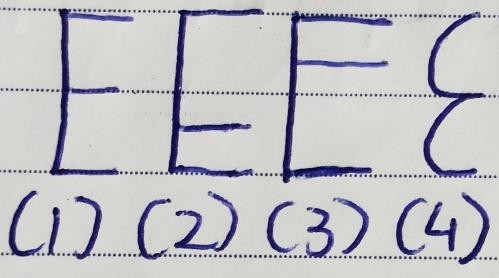 E E E Ɛ
(1) (2) (3) (4)